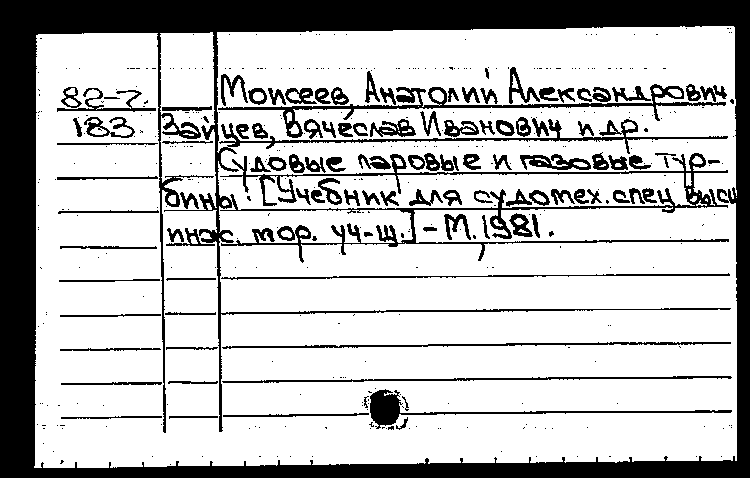 82-7. Моисеев, Анатолий Александрович.
183 Зайцев, Вячеслав Иванович и др.
Судовые паровые и газовые тур-
бины: [Учебник для судомех. спец. высш
инж. мор. уч-щ.] - М., 1981.